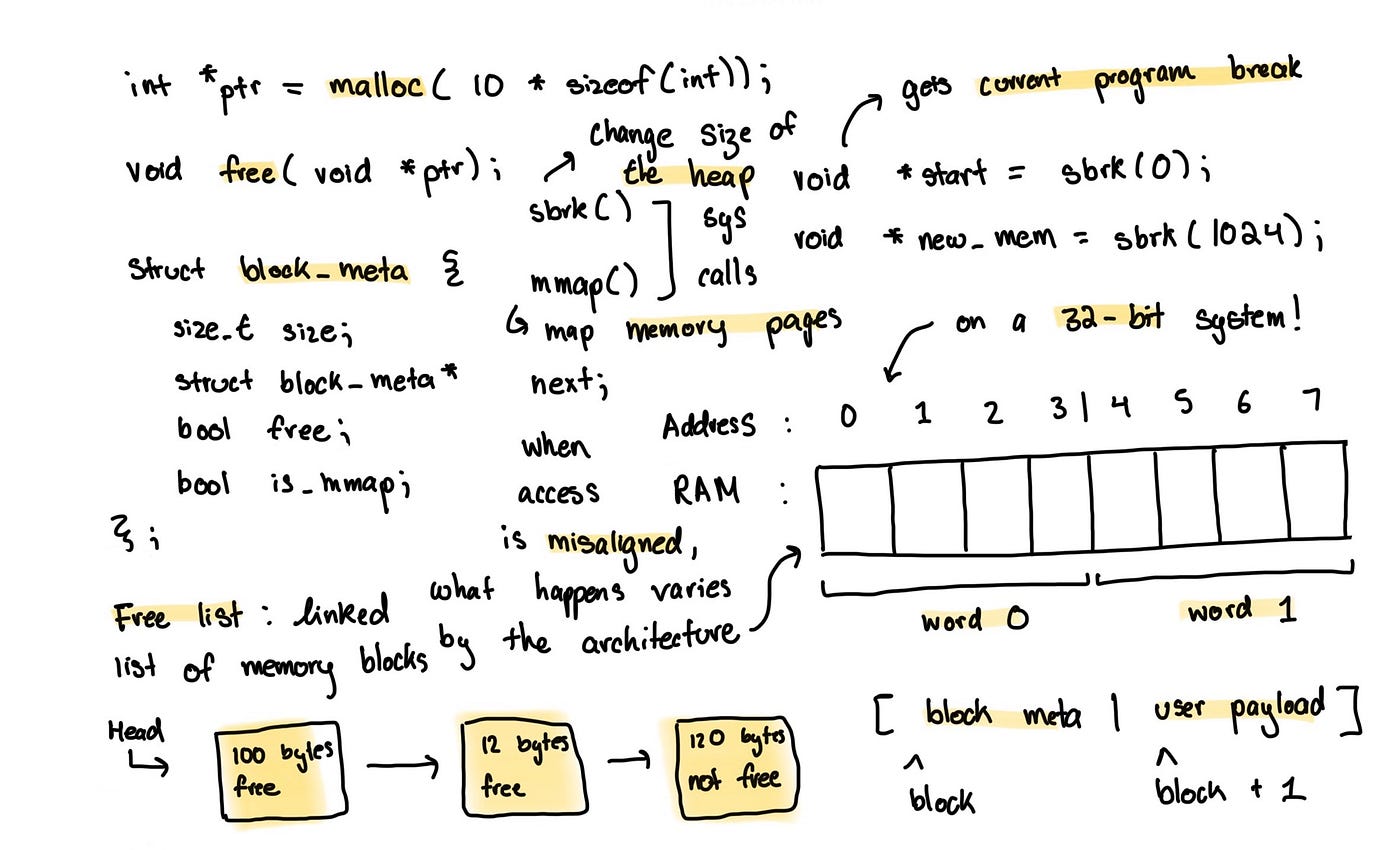 int *ptr = malloc( 10 * sizeof(int));
void free( void *ptr);
change size of
the heap
sbrk()
mmap()
sys
calls
map memory pages
gets current program break
void *start = sbrk(0);
void * new_mem = sbrk(1024);
struct block_meta {
size_t size;
struct block_meta* next;
bool free;
bool is_mmap;
};
on a 32-bit system!
Address : 0 1 2 3 | 4 5 6 7
RAM :
word 0 word 1
when
access
is misaligned,
what happens varies
by the architecture
Free list : linked
list of memory blocks
Head
100 bytes
free
12 bytes
free
120 bytes
not free
[ block meta | user payload ]
^ ^
block block + 1